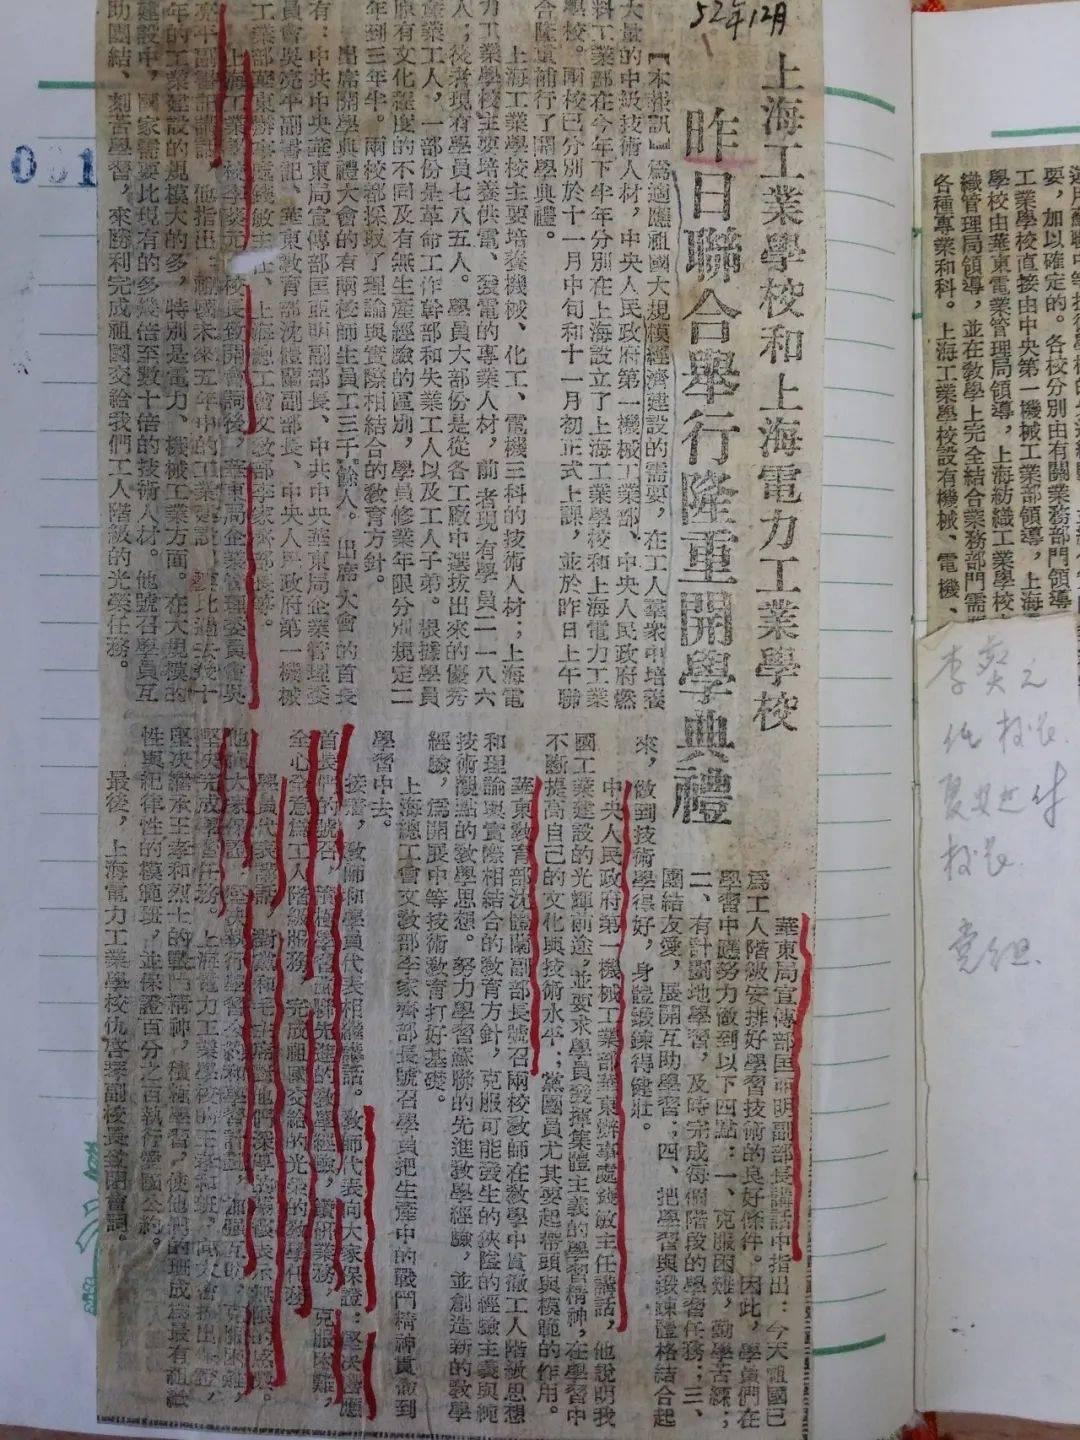 52年12月
上海工業學校和上海電力工業學校
昨日聯合舉行隆重開學典禮
【本報訊】爲適應祖國大規模經濟建設的需要，在工人羣衆中培養
大量的中級技術人材，中央人民政府第一機械工業部、中央人民政府燃
料工業部在今年下半年分別在上海設立了上海工業學校和上海電力工業
學校。兩校已分別於十一月中旬和十一月初正式上課，並於昨日上午聯
合隆重補行了開學典禮。
上海工業學校主要培養機械、化工、電機三科的技術人材；上海電
力工業學校主要培養供電、發電的專業人材，前者現有學員二一八六
人，後者現有學員七八五人。學員大部份是從各工廠中選拔出來的優秀
產業工人，一部份是革命工作幹部和失業工人以及工人子弟。根據學員
原有文化程度的不同及有無生產經驗的區別，學員修業年限分別規定二
年到三年半。兩校都採取了理論與實際相結合的教育方針。
出席開學典禮大會的有兩校師生員工三千餘人。出席大會的首長
有：中共中央華東局宣傳部匡亞明副部長、中共中央華東局企業管理委
員會吳亮平副書記、華東教育部沈體蘭副部長、中央人民政府第一機械
工業部華東辦事處錢敏主任、上海總工會文教部李家齊部長等。
上海工業學校李奕元校長致開會詞後，華東局企業管理委員會吳
亮平副書記講話，他指出：祖國未來五年中的工業建設要比過去幾十
年的工業建設的規模大的多，特別是電力、機械工業方面。在大規模的
建設中，國家需要比現有的多幾倍至數十倍的技術人材。他號召學員互
助團結、刻苦學習，來勝利完成祖國交給我們工人階級的光榮任務。
華東局宣傳部匡亞明副部長講話中指出：今天祖國已
爲工人階級安排好學習技術的良好條件。因此，學員們在
學習中應努力做到以下四點：一、克服困難，勤學苦練；
二、有計劃地學習，及時完成每個階段的學習任務；三、
團結友愛，展開互助學習；四、把學習與鍛鍊體格結合起
來，做到技術學得好，身體鍛鍊得健壯。
中央人民政府第一機械工業部華東辦事處錢敏主任講話，他說明我
國工業建設的光輝前途，並要求學員發揮集體主義的學習精神，在學習中
不斷提高自己的文化與技術水平；黨團員尤其要起帶頭與模範的作用。
華東教育部沈體蘭副部長號召兩校教師在教學中貫徹工人階級思想
和理論與實際相結合的教育方針，克服可能發生的狹隘的經驗主義與純
技術觀點的教學思想。努力學習蘇聯的先進教學經驗，並創造新的教學
經驗，爲開展中等技術教育打好基礎。
上海總工會文教部李家齊部長號召學員把生產中的戰鬥精神貫徹到
學習中去。
接着，教師和學員代表相繼講話。教師代表向大家保證：堅決響應
首長們的號召，積極學習蘇聯先進的教學經驗，鑽研業務，克服困難，
全心全意爲工人階級服務，完成祖國交給的光榮的教學任務。
學員代表講話，對黨和毛主席對他們深厚的關懷表示無限的感激。
他向大家保證，堅決執行學習公約和學習計劃，加強互助，克服困難，
堅決完成學習任務。上海電力工業學校的王孝和班，向大會提出保證，
堅決繼承王孝和烈士的戰鬥精神，積極學習，使他們的班成爲最有組織
性與紀律性的模範班，並保證百分之百執行愛國公約。
最後，上海電力工業學校仇啓琴副校長致閉會詞。
001
要，加以確定的。各校分別由有關業務部門領導
工業學校直接由中央第一機械工業部領導，上海
學校由華東電業管理局領導，上海紡織工業學校
織管理局領導，並在教學上完全結合業務部門需
各種專業和科。上海工業學校設有機械、電機、
李奕元
任校长
校长
党组